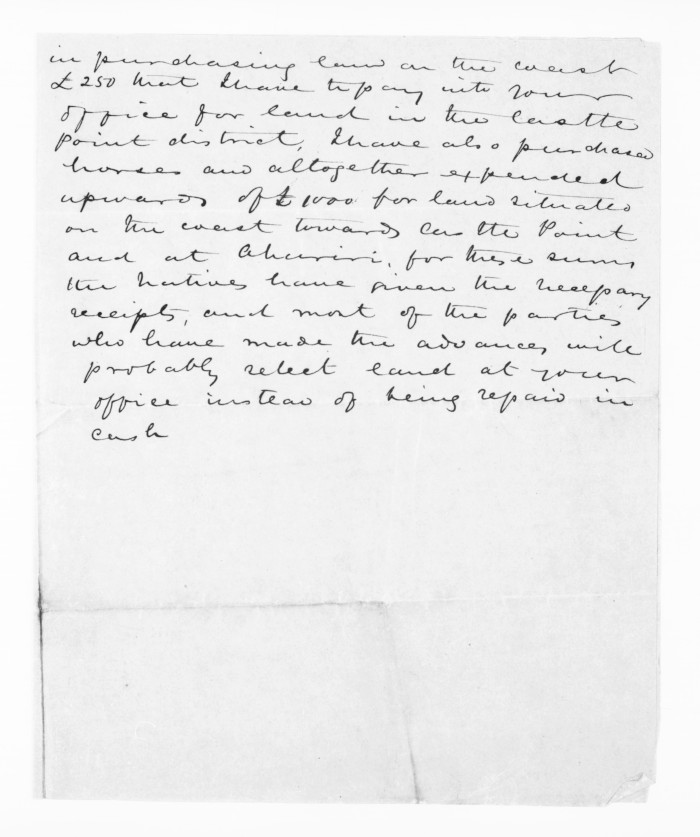 in purchasing land on the coast
£250 that I have to pay into your
office for land in the Castle
Point district, I have also purchased
horses and altogether expended
upwards of £1000 for land situated
on the coast towards Castle Point
and at Ahuriri, for these sums
the Natives have given the necessary
receipts, and most of the parties
who have made the advances will
probably select land at your
office instead of being repaid in
cash